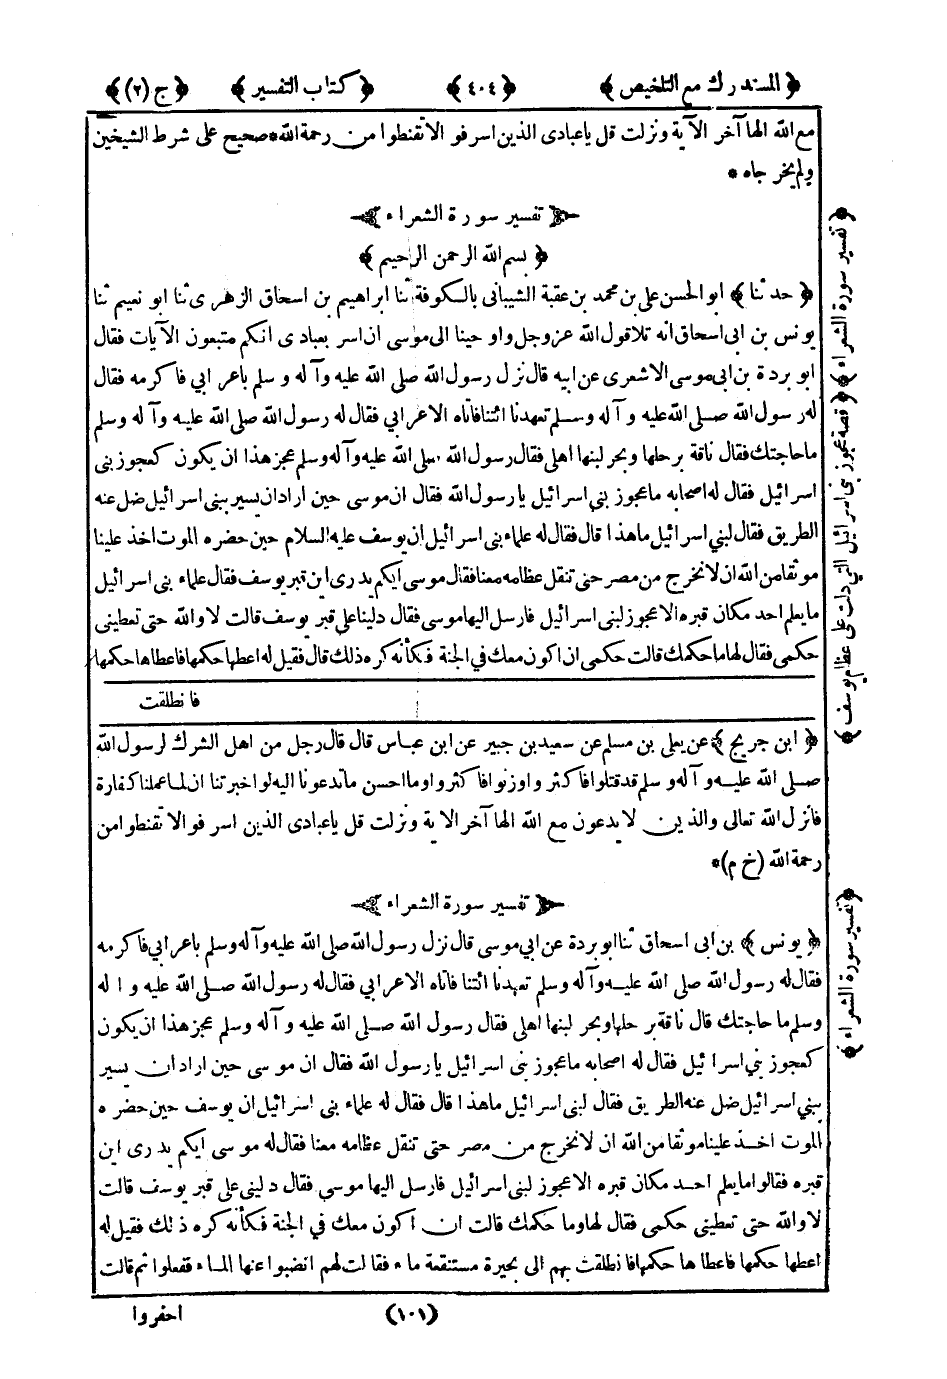 ﴿ المستدرك مع التلخيص ﴾ ﴿ ٤٠٤ ﴾ ﴿ كتاب التفسير ﴾ ﴿ ج (٢) ﴾
مع الله الها آخر الآية ونزلت قل ياعبادى الذين اسرفوا لا تقنطوا من رحمة الله * صحيح على شرط الشيخين
ولم يخرجاه *
تفسير سورة الشعراء
﴿ بسم الله الرحمن الرحيم ﴾
﴿ حدثنا ﴾ ابو الحسن على بن محمد بن عقبة الشيبانى بالكوفة ثنا ابراهيم بن اسحاق الزهرى ثنا ابو نعيم ثنا
يونس بن ابى اسحاق انه تلا قول الله عزوجل واوحينا الى موسى ان اسر بعبادى انكم متبعون الآيات فقال
ابو بردة بن ابى موسى الاشعرى عن ابيه قال نزل رسول الله صلى الله عليه وآله وسلم باعرابي فاكرمه فقال
له رسول الله صلى الله عليه وآله وسلم تعهدنا ائتنا فاتاه الاعرابي فقال له رسول الله صلى الله عليه وآله وسلم
ما حاجتك فقال ناقة برحلها وبحر لبنها اهلى فقال رسول الله صلى الله عليه وآله وسلم عجز هذا ان يكون كعجوز بنى
اسرائيل فقال له اصحابه ما عجوز بني اسرائيل يا رسول الله فقال ان موسى حين اراد ان يسير ببنى اسرائيل ضل عنه
الطريق فقال لبني اسرائيل ما هذا قال فقال له علماء بنى اسرائيل ان يوسف عليه السلام حين حضره الموت اخذ علينا
موثقا من الله ان لا نخرج من مصر حتى تنقل عظامه معنا فقال موسى ايكم يدرى اين قبر يوسف فقال علماء بنى اسرائيل
ما يعلم احد مكان قبره الا عجوز لبنى اسرائيل فارسل اليها موسى فقال دلينا على قبر يوسف قالت لا والله حتى تعطينى
حكمى فقال لها ما حكمك قالت حكمى ان اكون معك في الجنة فكأنه كره ذلك قال فقيل له اعطها حكمها فاعطاها حكمها
فانطلقت
﴿ ابن جريج ﴾ عن يعلى بن مسلم عن سعيد بن جبير عن ابن عباس قال قال رجل من اهل الشرك لرسول الله
صلى الله عليه وآله وسلم قد قتلوا فاكثروا وزنوا فاكثروا وما احسن ما تدعونا اليه لو اخبرتنا ان لما عملنا كفارة
فانزل الله تعالى والذين لا يدعون مع الله الها آخر الاية ونزلت قل ياعبادى الذين اسرفوا لا تقنطوا من
رحمة الله (خ م) *
تفسير سورة الشعراء
﴿ يونس ﴾ بن ابى اسحاق ثنا ابو بردة عن ابي موسى قال نزل رسول الله صلى الله عليه وآله وسلم باعرابي فاكرمه
فقال له رسول الله صلى الله عليه وآله وسلم تعهدنا ائتنا فاتاه الاعرابي فقال له رسول الله صلى الله عليه وا له
وسلم ما حاجتك قال ناقة برحلها وبحر لبنها اهلى فقال رسول الله صلى الله عليه وآله وسلم عجز هذا ان يكون
كعجوز بني اسرائيل فقال له اصحابه ما عجوز بنى اسرائيل يا رسول الله فقال ان موسى حين اراد ان يسير
ببني اسرائيل ضل عنه الطريق فقال لبنى اسرائيل ما هذا قال فقال له علماء بنى اسرائيل ان يوسف حين حضره
الموت اخذ علينا موثقا من الله ان لا نخرج من مصر حتى تنقل عظامه معنا فقال له موسى ايكم يدرى اين
قبره فقالوا ما يعلم احد مكان قبره الا عجوز لبنى اسرائيل فارسل اليها موسى فقال دلينى على قبر يوسف قالت
لا والله حتى تعطينى حكمى فقال لها وما حكمك قالت ان اكون معك في الجنة فكأنه كره ذلك فقيل له
اعطها حكمها فاعطاها حكمها فانطلقت بهم الى بحيرة مستنقعة ماء فقالت لهم انضبوا عنها الماء ففعلوا ثم قالت
(١٠١) احفروا
﴿ تفسير سورة الشعراء ﴾ ﴿ قصة عجوز بنى اسرائيل التي دلت على عظام يوسف ﴾
﴿ تفسير سورة الشعراء ﴾